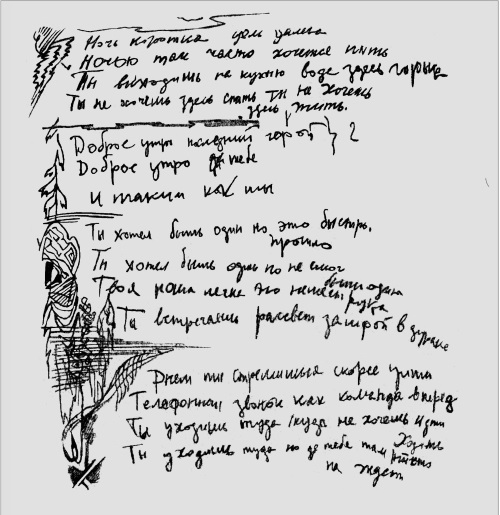 Ночь коротка цель далека
Ночью так часто хочется пить
Ты выходишь на кухню вода здесь горька
Ты не можешь здесь спать ты не хочешь
здесь жить.
Доброе утро последний герой } 2
Доброе утро тебе
И таким как ты
Ты хотел быть один но это быстро.
прошло
Ты хотел быть один но не смог
быть один
Твоя ноша легка но немеет рука
Ты встречаешь рассвет за игрой в дурака
Днем ты стремишься скорее уйти
Телефонный звонок как команда вперед
Ты уходишь туда куда не хочешь идти
Ты уходишь туда но тебя там никто
не ждет